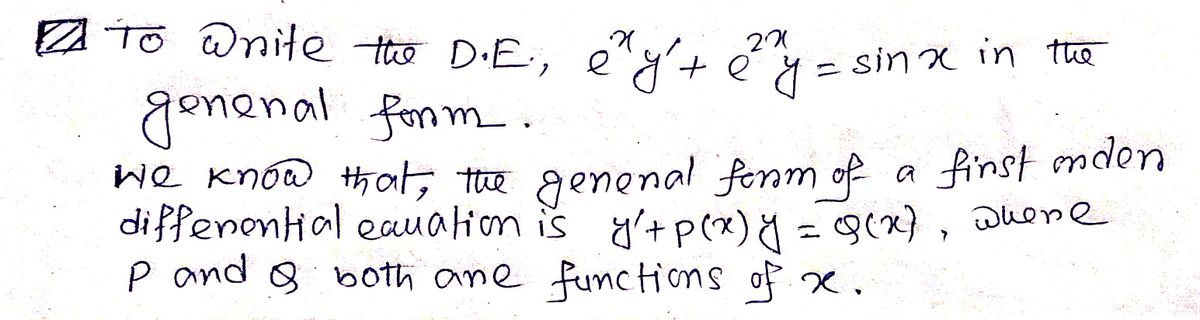 To write the D.E., e^x y' + e^2x y = sin x in the
general form.
We know that, the general form of a first order
differential equation is y' + p(x) y = Q(x), where
P and Q both are functions of x.